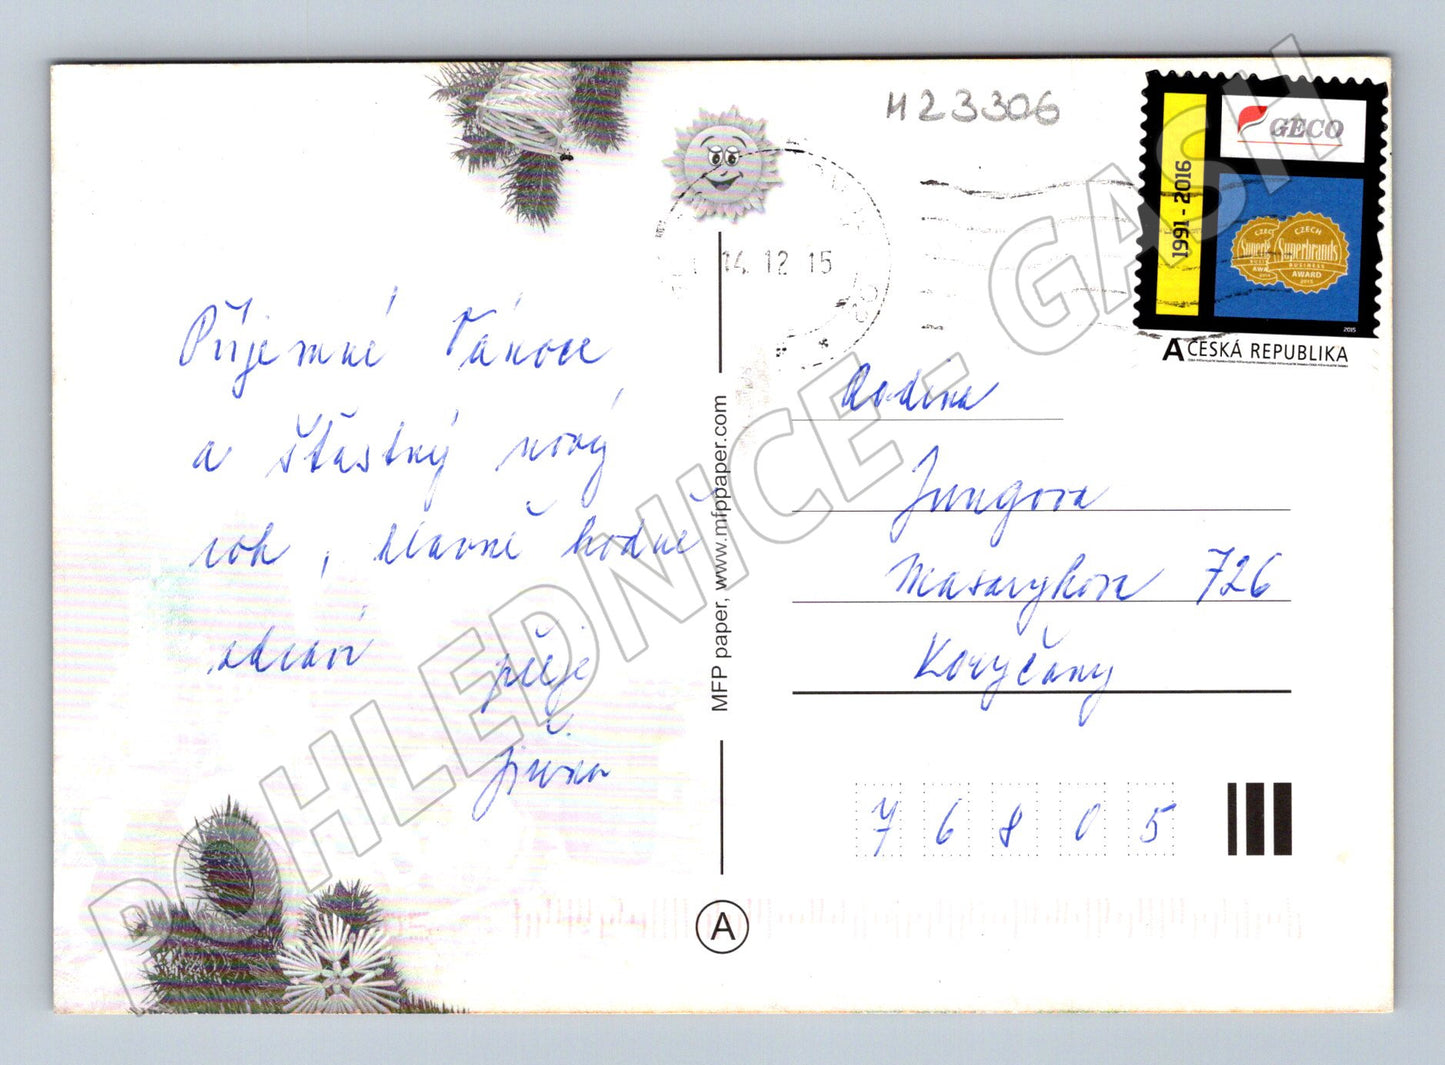 M23306
GECO
1991 - 2016
CZECH
Superbrands
BUSINESS
AWARD
2015
2015
A ČESKÁ REPUBLIKA
14 12 15
Příjemné Vánoce
a šťastný nový
rok, hlavně hodně
zdraví přeje
Jiřina
MFP paper, www.mfppaper.com
Rodina
Jungova
Masarykova 726
Koryčany
76805
A
POHLEDNICE - GASH